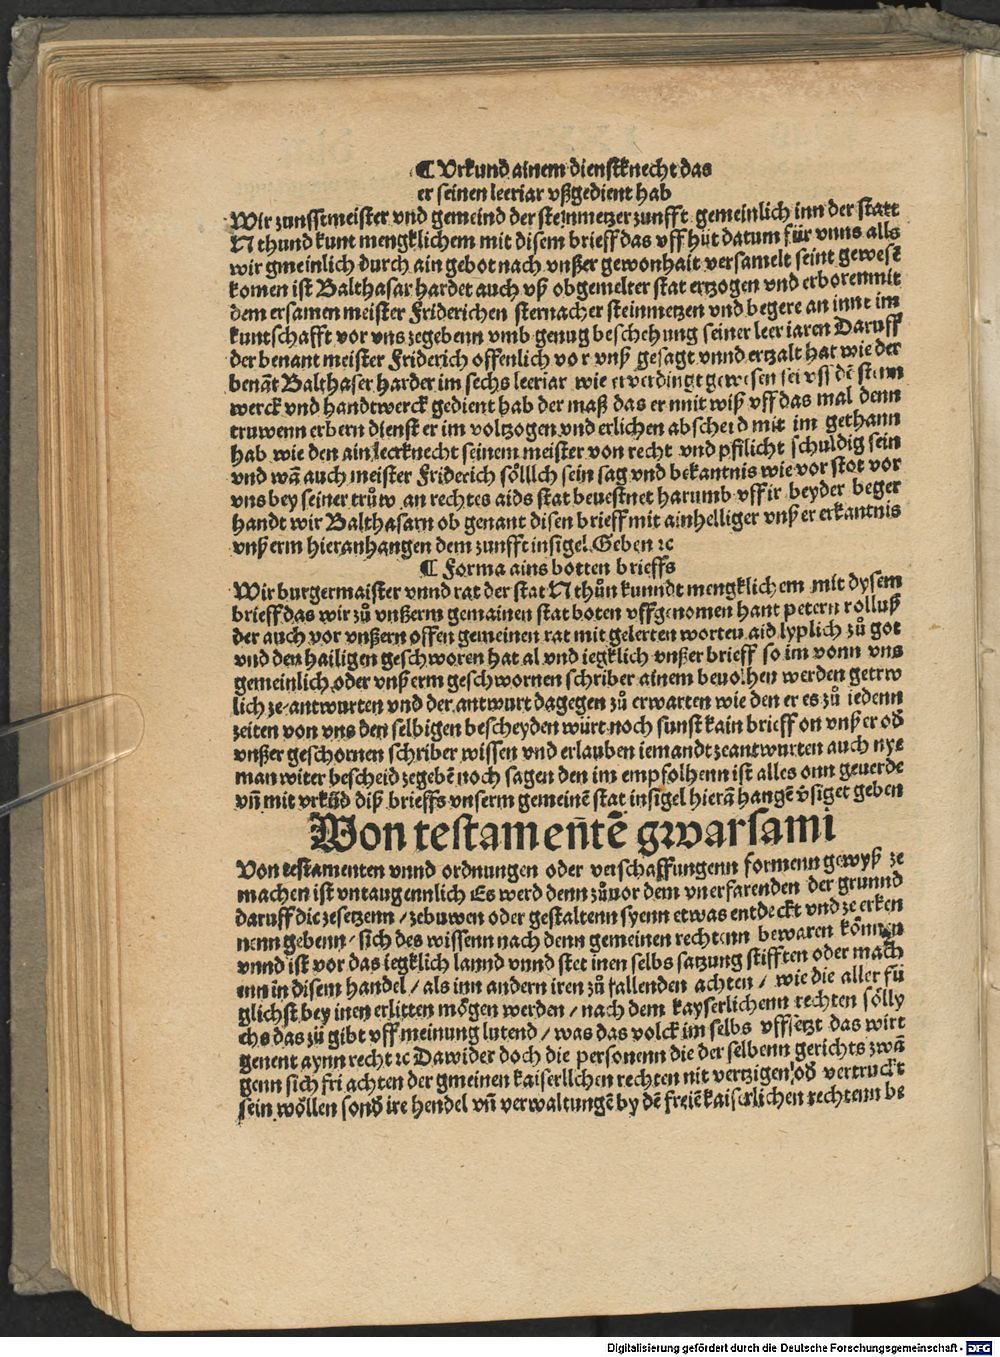 ¶ Urkund ainem dienstknecht das
er seinen leeriar vßgedient hab
Wir zunfftmeister vnd gemeind der steinmetzer zunfft gemeinlich inn der statt
N thund kunt mengklichem mit disem brieff das vff hüt datum für vnns alls
wir gmeinlich durch ain gebot nach vnßer gewonhait versamelt seint gewesē
komen ist Balthasar hardet auch vß obgemelter stat ertzogen vnd erborenmit
dem ersamen meister Friderichen sternacher steinmetzen vnd begere an inne im
kuntschafft vor vns zegebenn vmb genug beschehung seiner leer iaren Daruff
der benant meister Friderich offenlich vor vnß gesagt vnnd ertzalt hat wie der
benāt Balthaser harder im sechs leeriar wie er verdingt gewesen sei vff dē stein
werck vnd handtwerck gedient hab der maß das er nnit wiß vff das mal denn
truwenn erbern dienst er im voltzogen vnd erlichen abscheid mit im gethann
hab wie den ain leerknecht seinem meister von recht vnd pflilicht schuldig sein
vnd wā auch meister Friderich sölllch sein sag vnd bekantnis wie vor stot vor
vns bey seiner trůw an rechtes aids stat beuestnet harumb vff ir beyder beger
handt wir Balthasarn ob genant disen brieff mit ainhelliger vnßer erkantnis
vnßerm hieranhangen dem zunfft insigel Geben ⁊c
¶ Forma ains botten brieffs
Wir burgermaister vnnd rat der stat N thůn kunndt mengklichem mit dysem
brieff das wir zů vnßerm gemainen stat boten vffgenomen hant petern rolluß
der auch vor vnßern offen gemeinen rat mit gelerten worten aid lyplich zů got
vnd den hailigen geschworen hat al vnd iegklich vnßer brieff so im vonn vns
gemeinlich oder vnßerm geschwornen schriber ainem beuolhen werden getrw
lich ze antwurten vnd der antwurt dagegen zů erwarten wie den er es zů iedenn
zeiten von vns den selbigen bescheyden würt noch sunst kain brieff on vnßer oď
vnßer geschornen schriber wissen vnd erlauben iemandt zeantwurten auch nye
man witer bescheid zegebē noch sagen den im empfolhenn ist alles onn geuerde
vn̄ mit vrkūd diß brieffs vnserm gemeinē stat insigel hierā hangē v̄siget geben
Von testamen̄tē gwarsami
Von testamenten vnnd ordnungen oder verschaffungenn formenn gewyß ze
machen ist vntaugennlich Es werd denn zůuor dem vnerfarenden der grunnd
daruff die zesetzenn / zebuwen oder gestaltenn syenn etwas entdeckt vnd ze erken
nenn gebenn / sich des wissenn nach denn gemeinen rechtenn bewaren können
vnnd ist vor das iegklich lannd vnnd stet inen selbs satzung stifften oder mach
enn in disem handel / als inn andern iren zů fallenden achten / wie die aller fů
glichst bey inen erlitten mögen werden / nach dem kayserlichenn rechten sölly
chs das zů gibt vff meinung lutend / was das volck im selbs vffsetzt das wirt
genent aynn recht ⁊c Dawider doch die personenn die der selbenn gerichts zwā
genn sich fri achten der gmeinen kaiserllchen rechten nit vertzigen oď vertruckt
sein wöllen sonď ire hendel vn̄ verwaltungē by dē freiē kaiserlichen rechtenn be
Digitalisierung gefördert durch die Deutsche Forschungsgemeinschaft - DFG